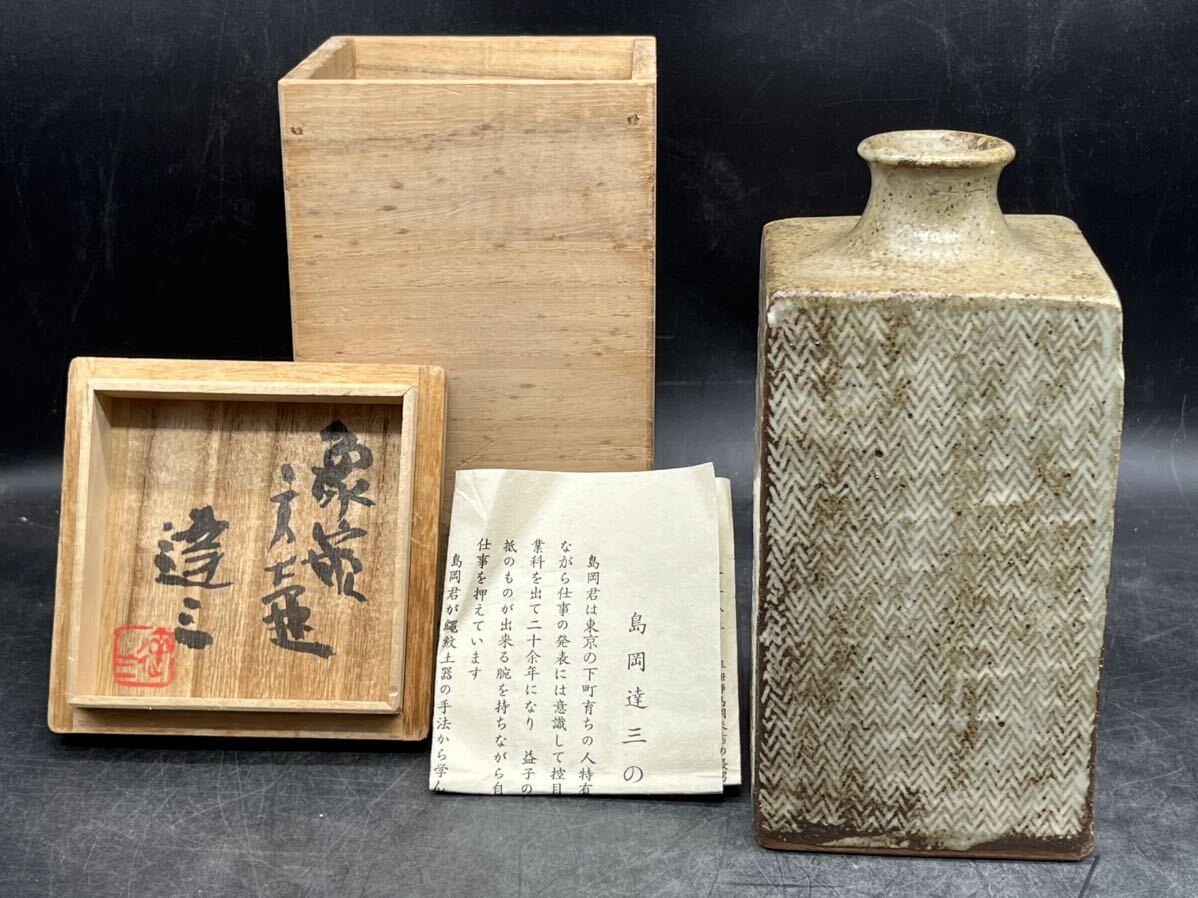 象嵌
達三
島岡達三の
島岡君は東京の下町育ちの人特有
ながら仕事の発表には意識して控目
業科を出て二十余年になり 益子の
抵のものが出来る腕を持ちながら自
仕事を押えています
島岡君が縄紋土器の手法から学ん